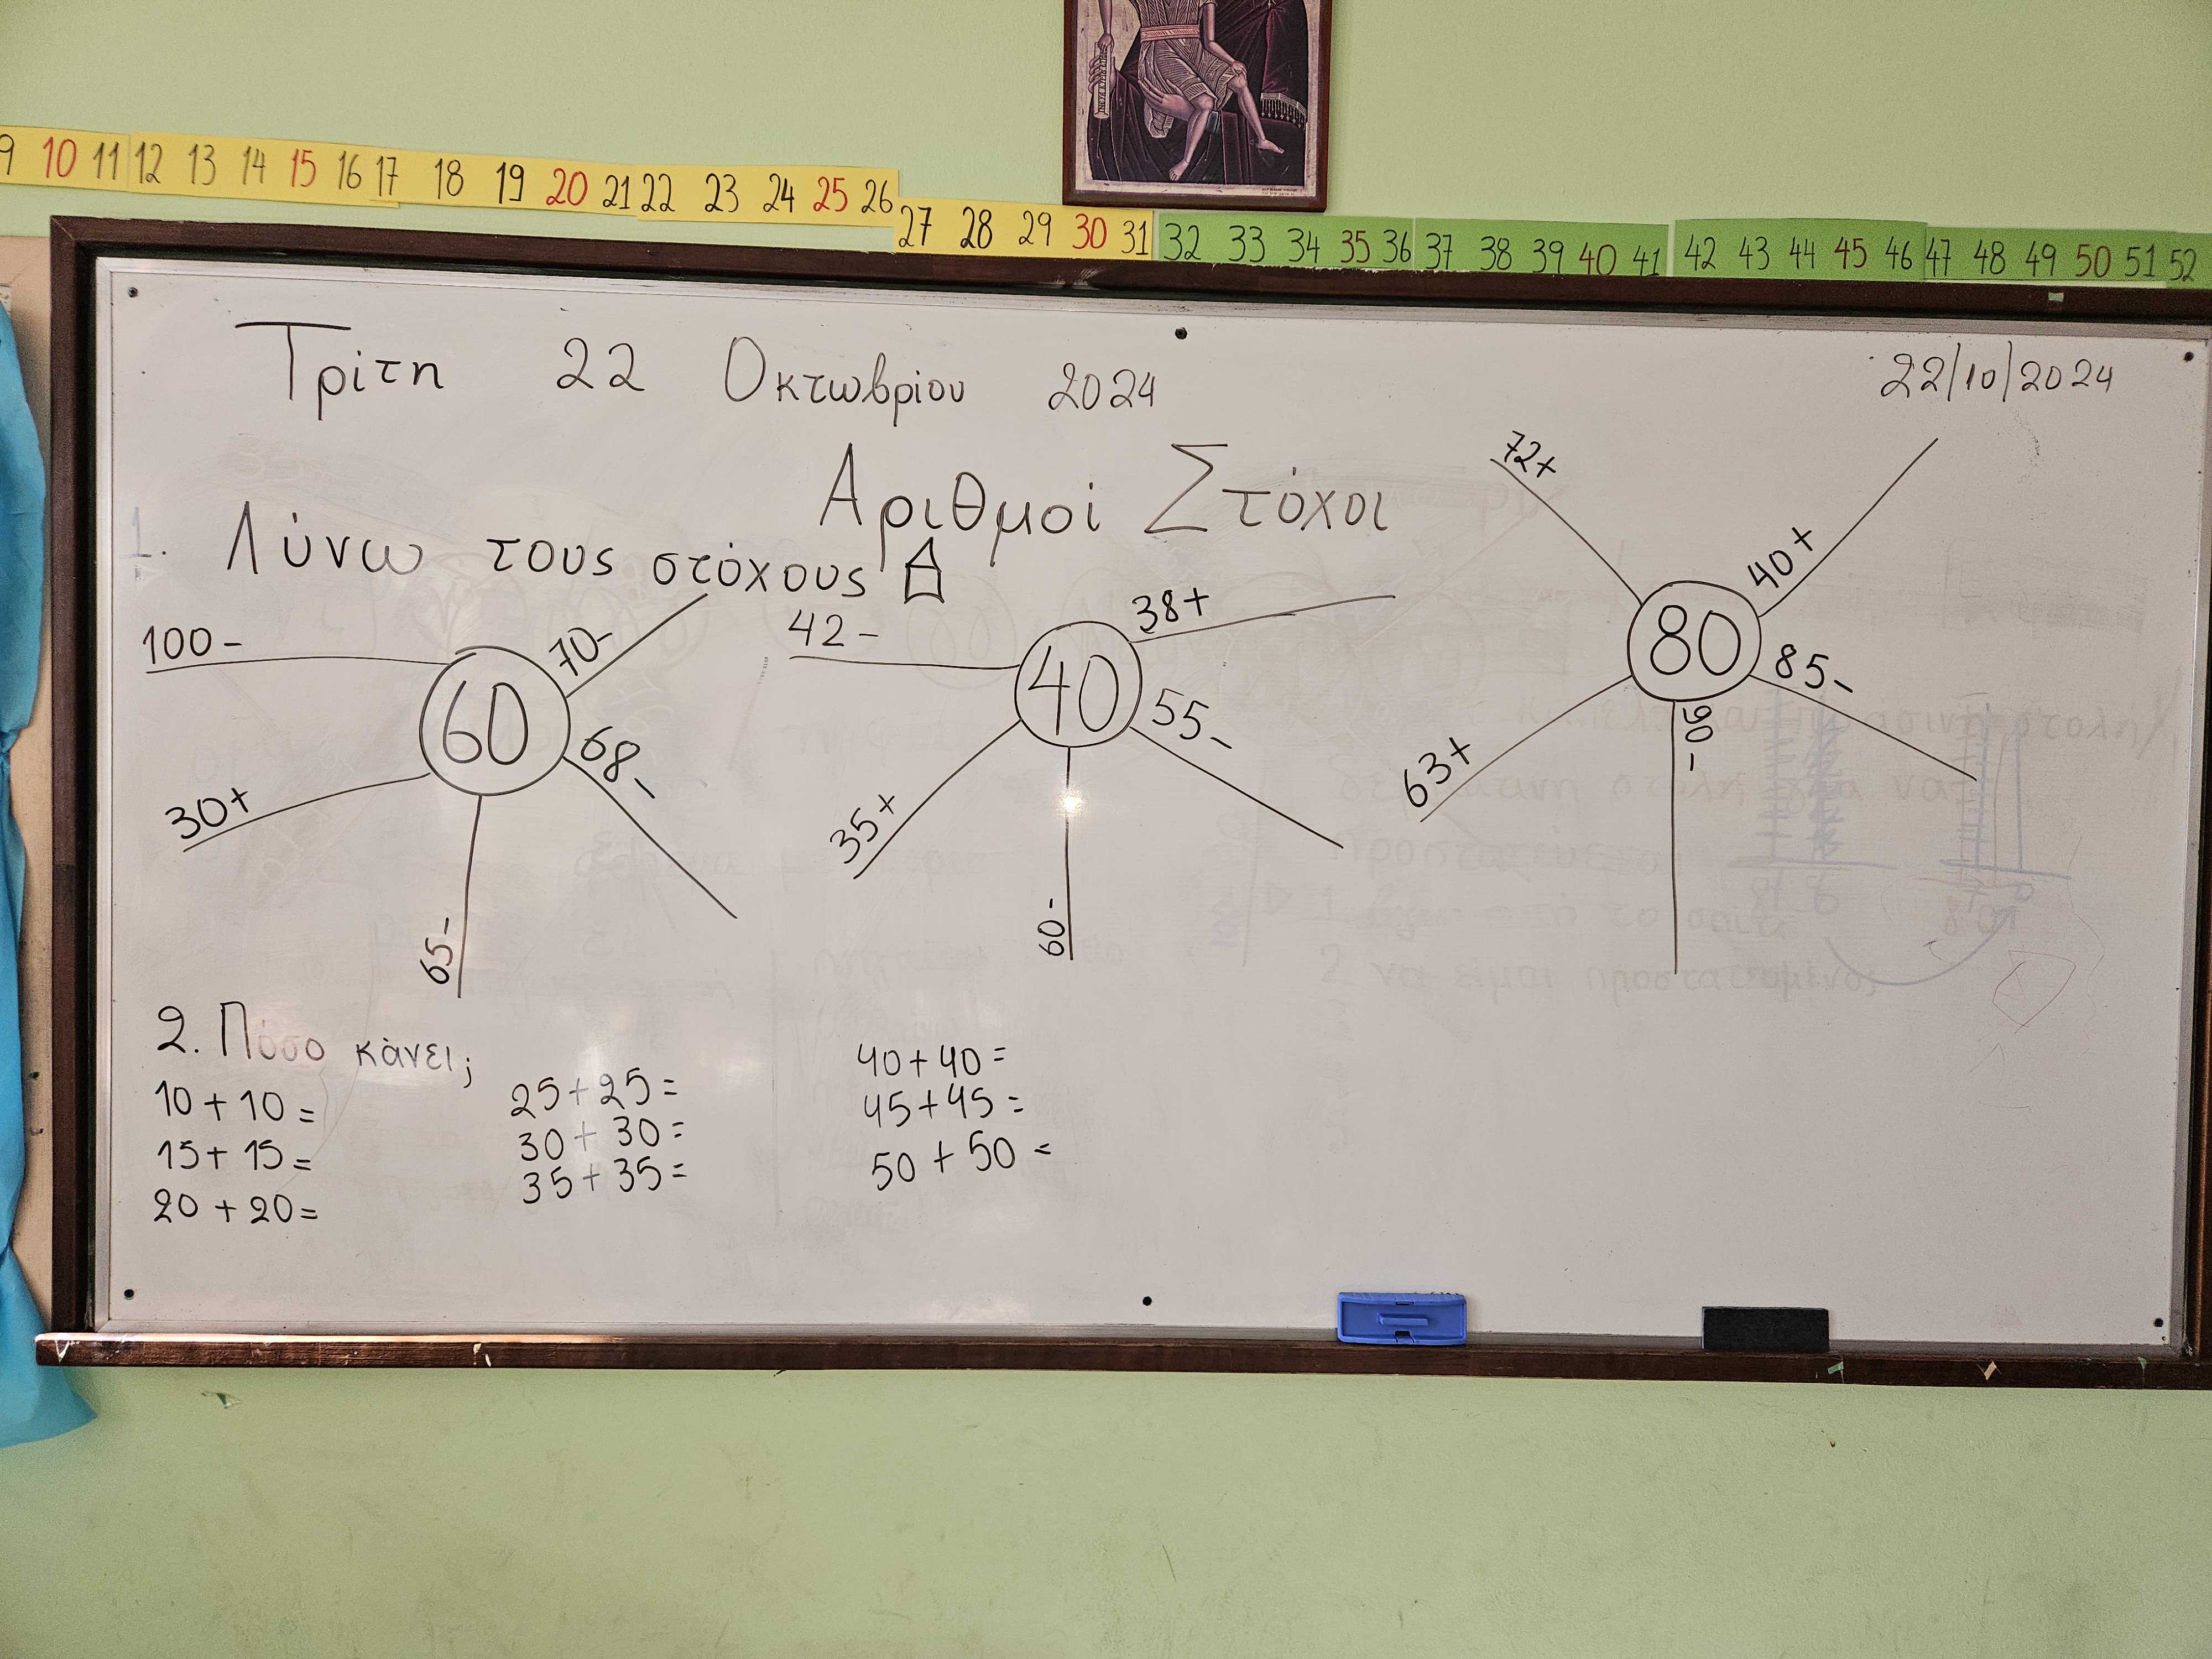 9 10 11 12 13 14 15 16 17 18 19 20 21 22 23 24 25 26 27 28 29 30 31 32 33 34 35 36 37 38 39 40 41 42 43 44 45 46 47 48 49 50 51 52
Τρίτη 22 Οκτωβρίου 2024
22/10/2024
Αριθμοί Στόχοι
1. Λύνω τους στόχους
100-
70-
60
68-
30+
65-
42-
38+
40
55-
35+
60-
72+
40+
80
85-
63+
90-
2. Πόσο κάνει;
10+10=
15+15=
20+20=
25+25=
30+30=
35+35=
40+40=
45+45=
50+50=